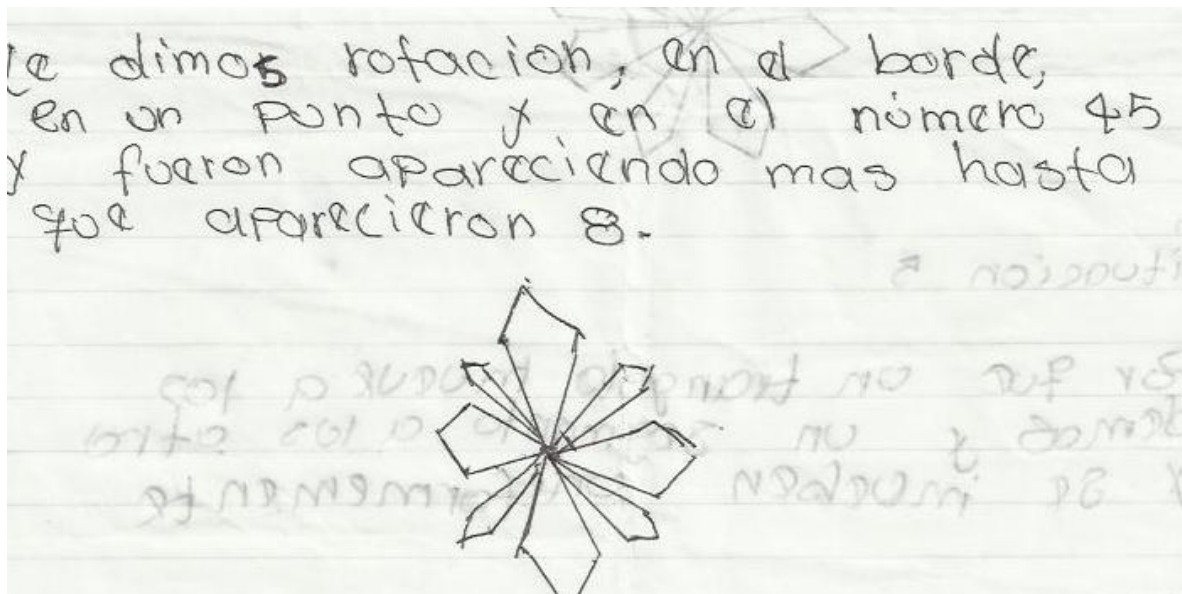 le dimos rotacion, en el borde,
en un punto y en el número 45
y fueron apareciendo mas hasta
que aparecieron 8.